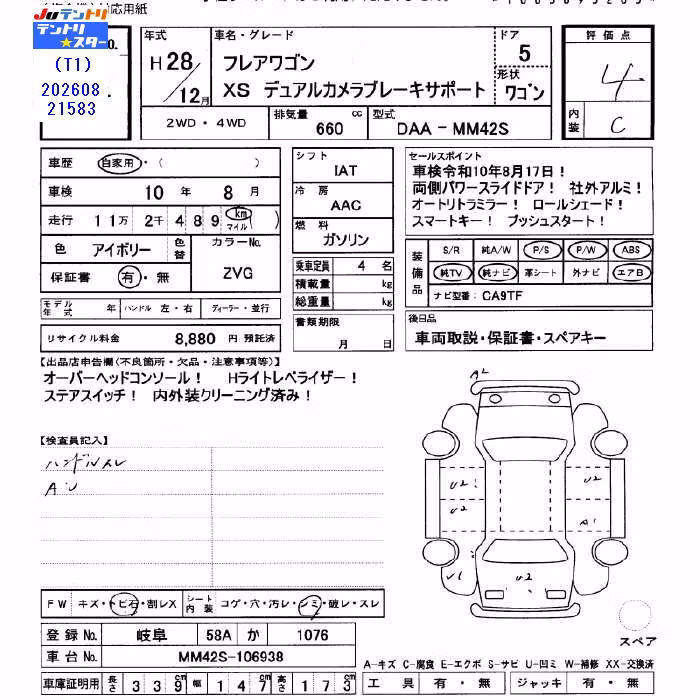 対応用紙
Juテントリ
テントリスター
(T1)
202608
21583
No.
年式
H28/12月
車名・グレード
フレアワゴン
XS デュアルカメラブレーキサポート
ドア
5
形状
ワゴン
評価点
4
内装
C
2WD・4WD
排気量
660
cc
型式
DAA-MM42S
車歴
自家用・( )
車検
10年 8月
走行
11万2千489
km
マイル
色
アイボリー
色替
カラーNo.
ZVG
保証書
有・無
モデル年式 年
ハンドル 左・右
ディーラー・並行
リサイクル料金
8,880 円 預託済
シフト
IAT
冷房
AAC
燃料
ガソリン
乗車定員
4 名
積載量
kg
総重量
kg
書類期限
月 日
セールスポイント
車検令和10年8月17日!
両側パワースライドドア! 社外アルミ!
オートリトラミラー! ロールシェード!
スマートキー! プッシュスタート!
装備品
S/R 純A/W P/S P/W ABS
純TV 純ナビ 革シート 外ナビ エアB
ナビ型番:CA9TF
後日品
車両取説・保証書・スペアキー
【出品店申告欄(不良箇所・欠品・注意事項等)】
オーバーヘッドコンソール! Hライトレベライザー!
ステアスイッチ! 内外装クリーニング済み!
【検査員記入】
ハンドルスレ
AU
A2
U2
U2
U2
A1
U1
U2
FW
キズ・トビ石・割レX
シート内装
コゲ・穴・汚レ・シミ・破レ・スレ
登録No.
岐阜 58A か 1076
車台No.
MM42S-106938
車庫証明用
長さ 339 cm
幅 147 cm
高さ 173 cm
スペア
A-キズ C-腐食 E-エクボ S-サビ U-凹ミ W-補修 XX-交換済
工具
有・無
ジャッキ
有・無